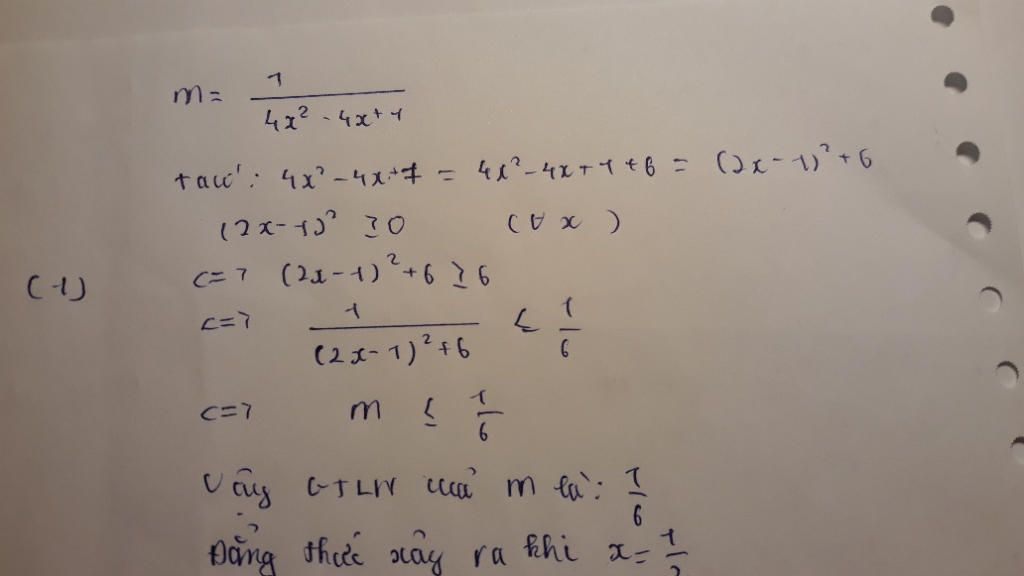 m = 1 / (4x² - 4x + 1)
ta có: 4x² - 4x + 7 = 4x² - 4x + 1 + 6 = (2x - 1)² + 6
(2x - 1)² ≥ 0 (∀ x)
(1) <=> (2x - 1)² + 6 ≥ 6
<=> 1 / ((2x - 1)² + 6) ≤ 1/6
<=> m ≤ 1/6
Vậy GTLN của m là: 1/6
Đẳng thức xảy ra khi x = 1/2